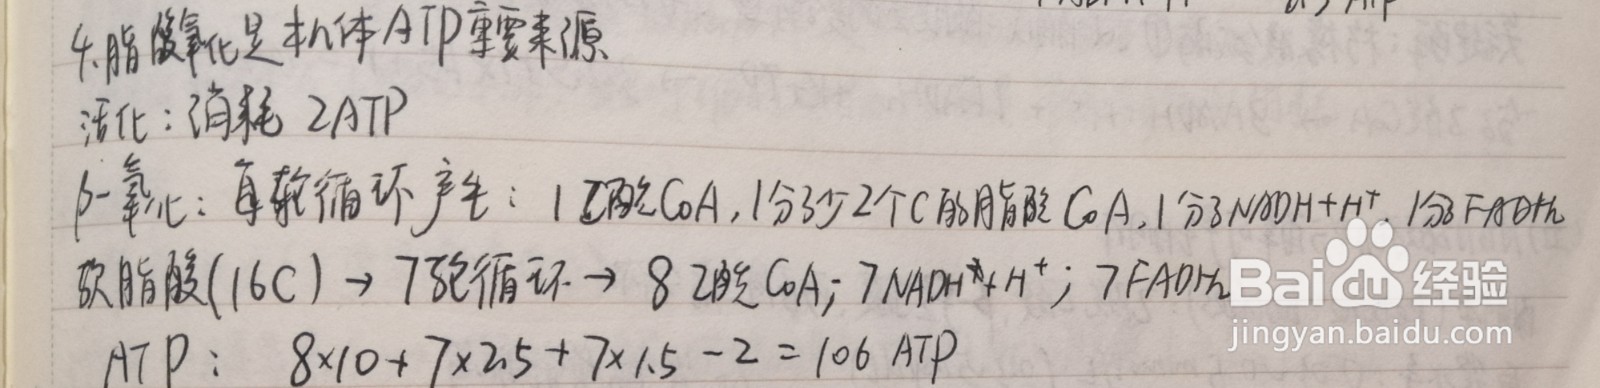 4.脂酸氧化是机体ATP重要来源
活化:消耗 2ATP
β-氧化:每轮循环产生:1乙酰CoA,1分子少2个C的脂酰CoA,1分子NADH+H⁺,1分子FADH₂
软脂酸(16C)→7轮循环→8乙酰CoA;7NADH+H⁺;7FADH₂
ATP: 8×10+7×2.5+7×1.5-2=106 ATP
Baidu经验
jingyan.baidu.com